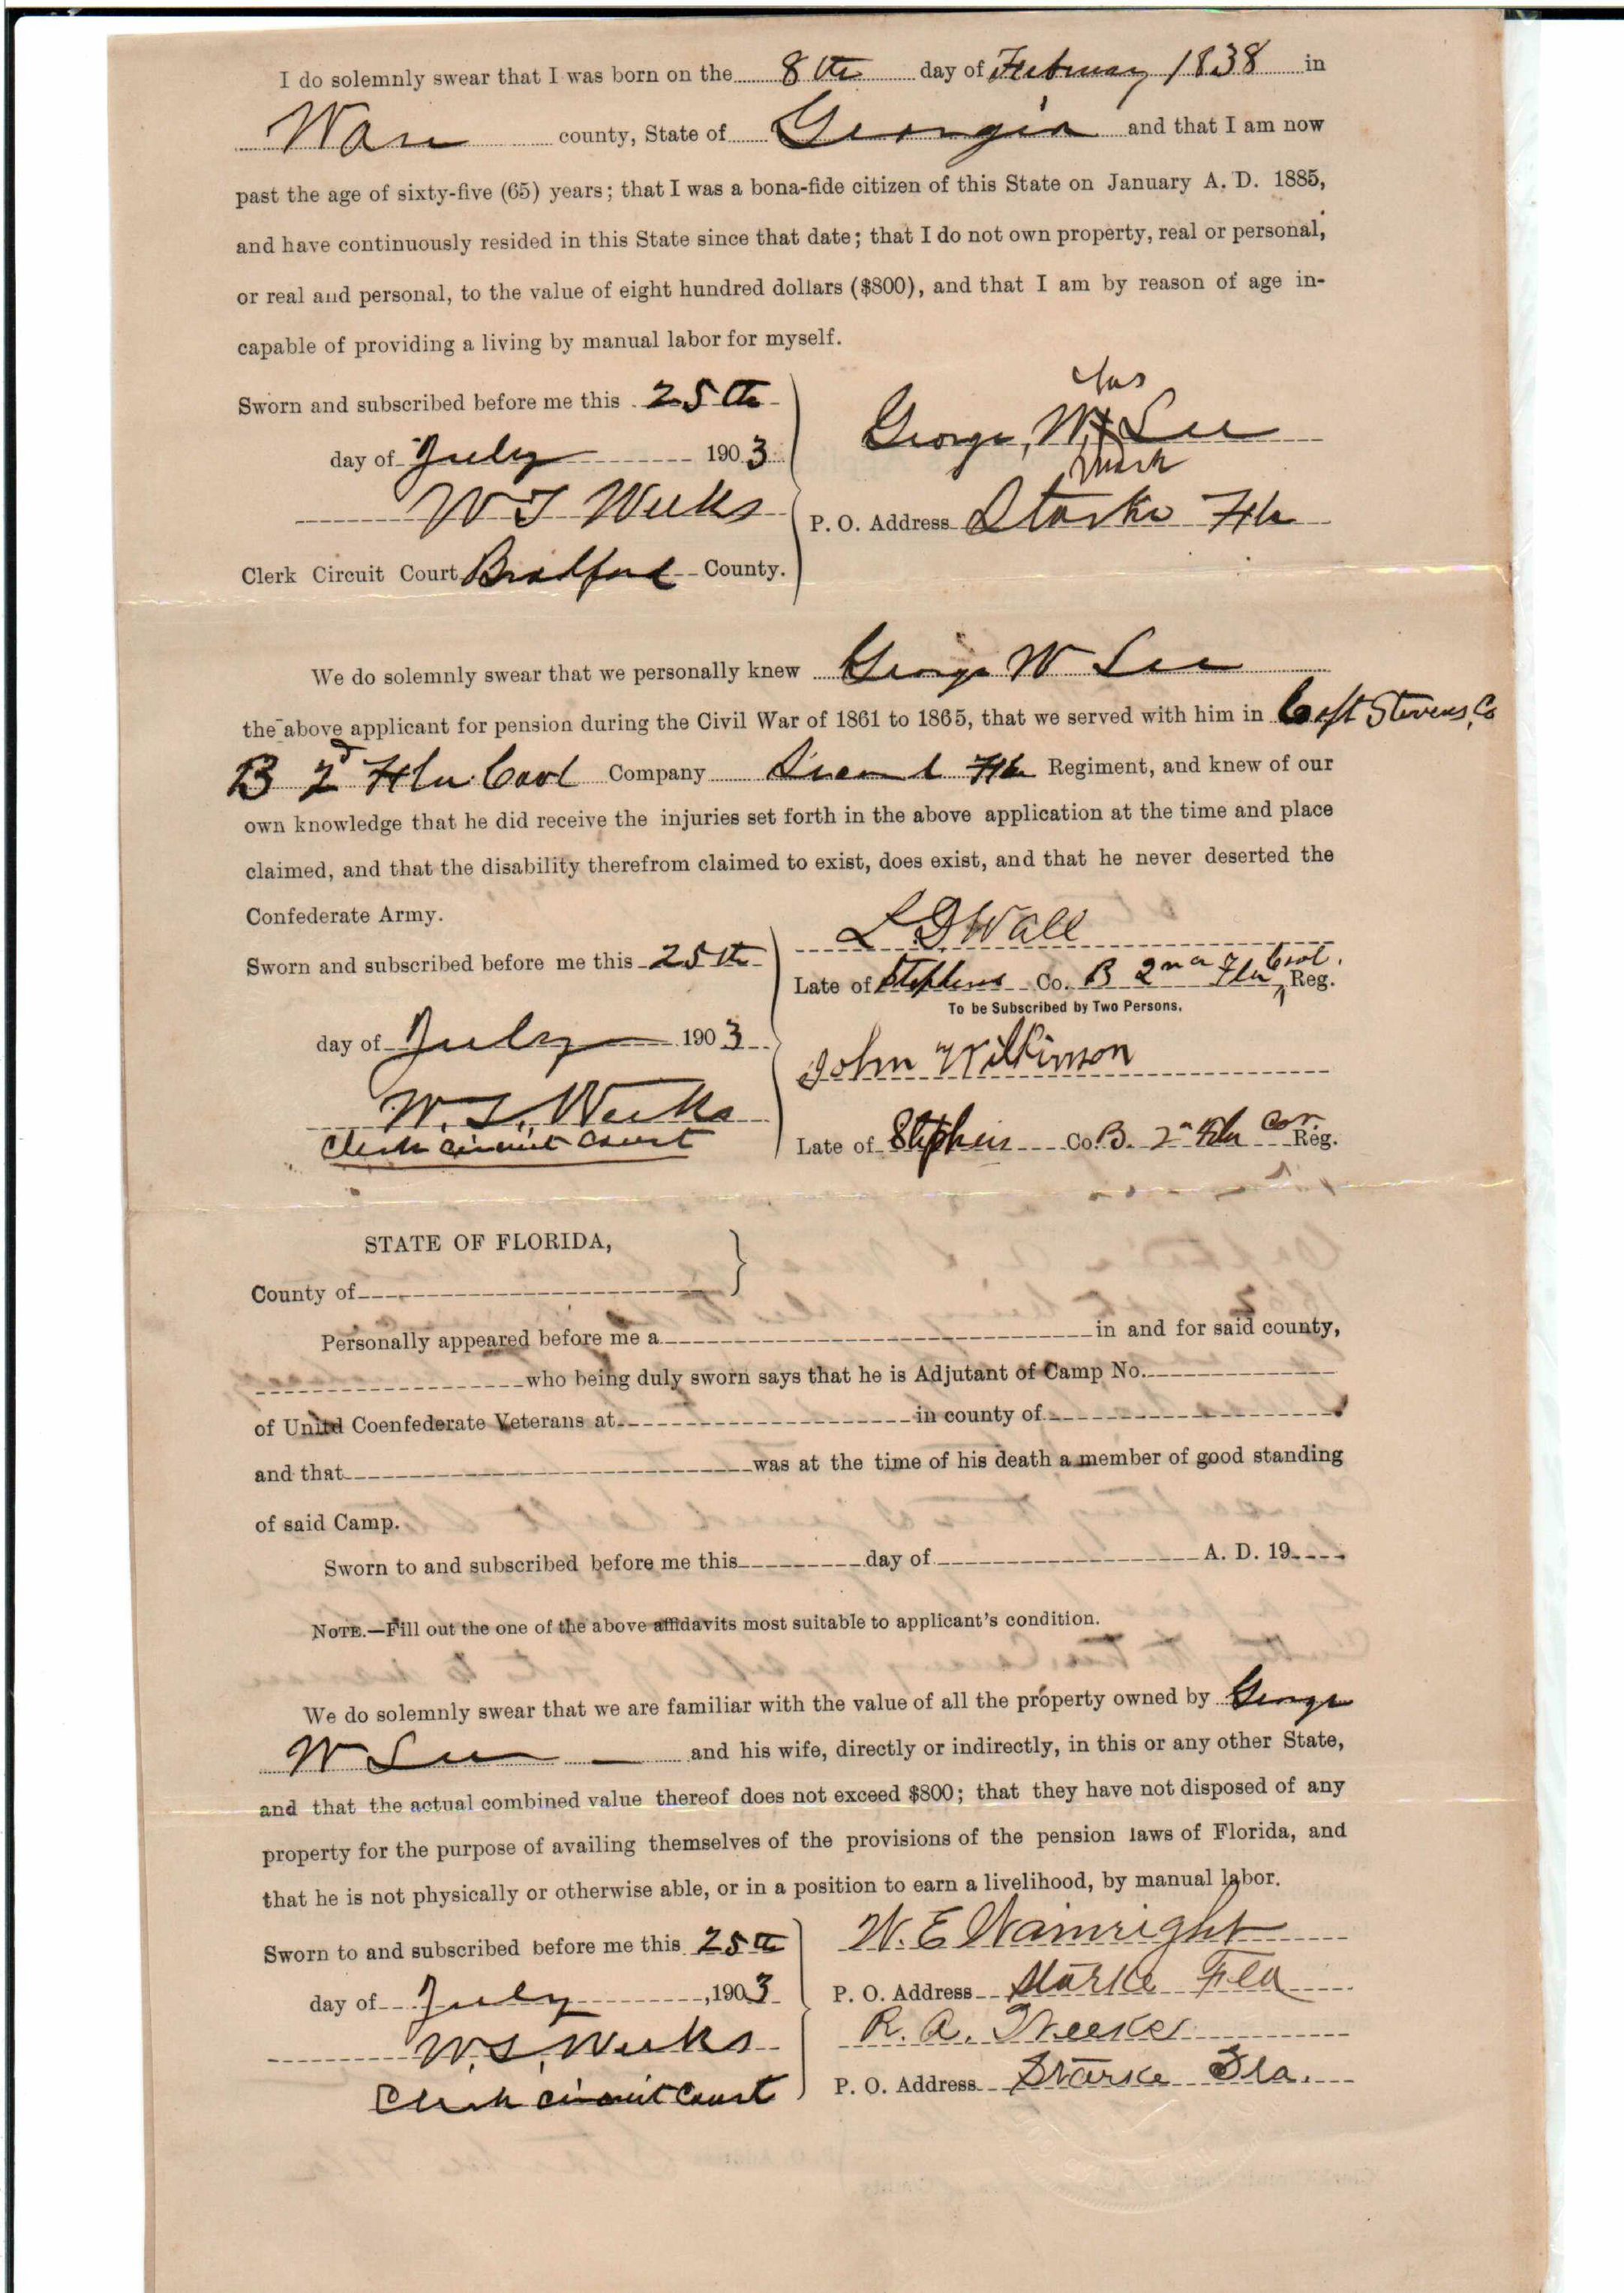 I do solemnly swear that I was born on the 8th day of February 1838 in
Ware county, State of Georgia and that I am now
past the age of sixty-five (65) years; that I was a bona-fide citizen of this State on January A. D. 1885,
and have continuously resided in this State since that date; that I do not own property, real or personal,
or real and personal, to the value of eight hundred dollars ($800), and that I am by reason of age in-
capable of providing a living by manual labor for myself.
Sworn and subscribed before me this 25th
day of July 1903
W T Weeks
Clerk Circuit Court Bradford County.
his
George, W. X Lee
mark
P. O. Address Starke Fla
We do solemnly swear that we personally knew George W Lee
the above applicant for pension during the Civil War of 1861 to 1865, that we served with him in Capt Stevens, Co
B 2d Fla Cavl Company Second Fla Regiment, and knew of our
own knowledge that he did receive the injuries set forth in the above application at the time and place
claimed, and that the disability therefrom claimed to exist, does exist, and that he never deserted the
Confederate Army.
Sworn and subscribed before me this 25th
day of July 1903
W. T. Weeks
Clerk circuit court
L D Wall
Late of Stephens Co. B 2nd Fla Cavl. Reg.
To be Subscribed by Two Persons.
John Wilkinson
Late of Stephens Co. B. 2n Fla Cav. Reg.
STATE OF FLORIDA,
County of
Personally appeared before me a in and for said county,
who being duly sworn says that he is Adjutant of Camp No.
of Unitd Coenfederate Veterans at in county of
and that was at the time of his death a member of good standing
of said Camp.
Sworn to and subscribed before me this day of A. D. 19
NOTE.—Fill out the one of the above affidavits most suitable to applicant's condition.
We do solemnly swear that we are familiar with the value of all the property owned by George
W Lee and his wife, directly or indirectly, in this or any other State,
and that the actual combined value thereof does not exceed $800; that they have not disposed of any
property for the purpose of availing themselves of the provisions of the pension laws of Florida, and
that he is not physically or otherwise able, or in a position to earn a livelihood, by manual labor.
Sworn to and subscribed before me this 25th
day of July, 1903
W. T. Weeks
Clerk circuit court
W. E Wainright
P. O. Address Starke Fla
R. A. Weeks
P. O. Address Starke Fla.